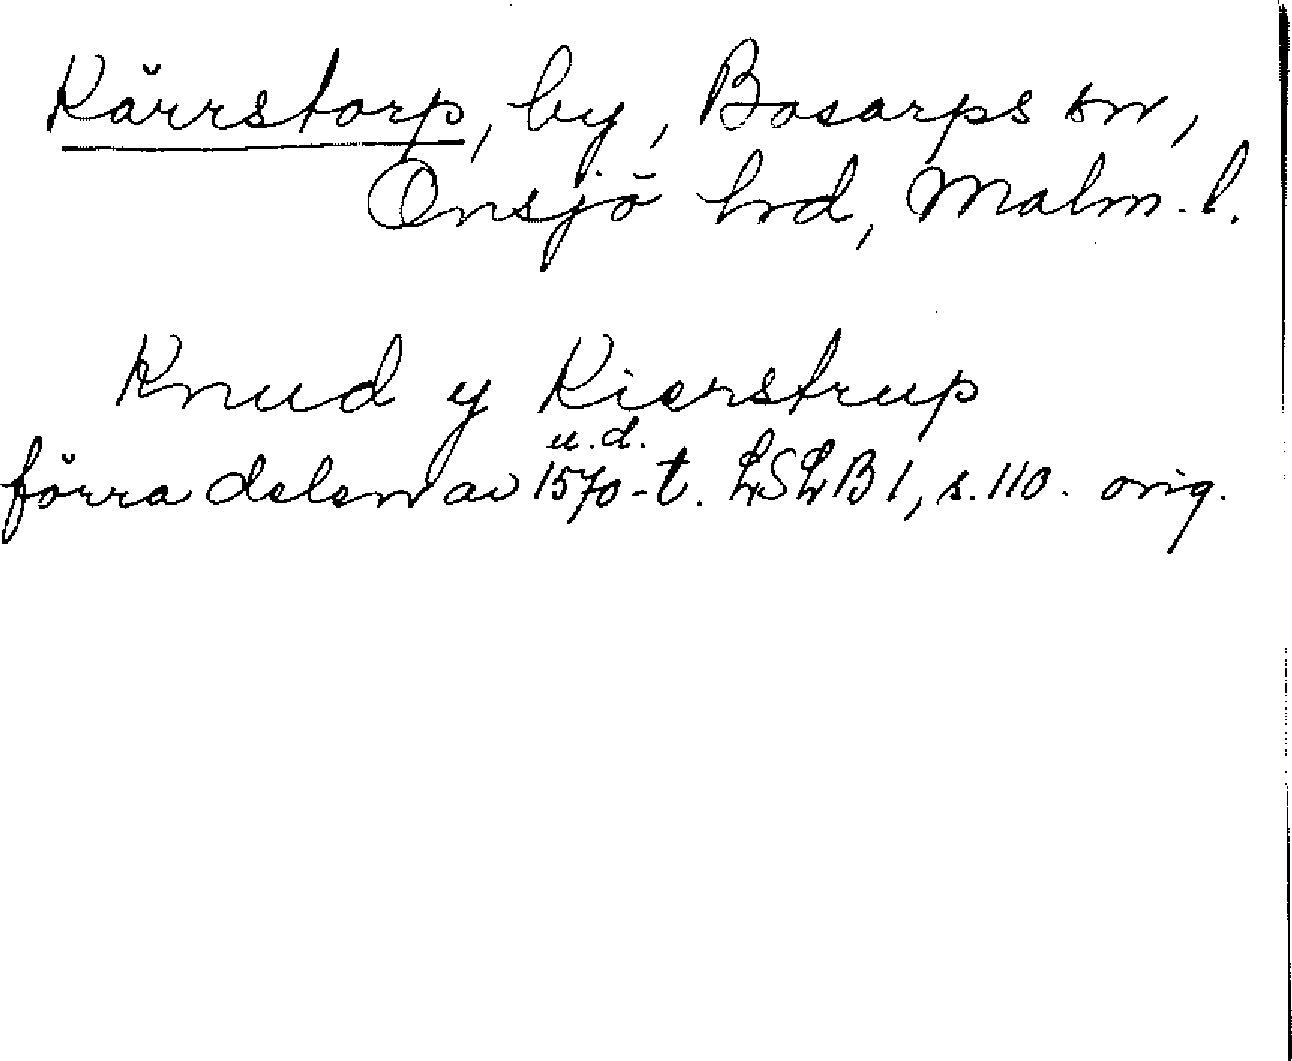 Kärrstorp, by, Bosarps sn,
Onsjö hrd, Malm. l.
Knud y Kierstrup
u.d.
förra delen av 1570-t. LSLB 1, s. 110. orig.